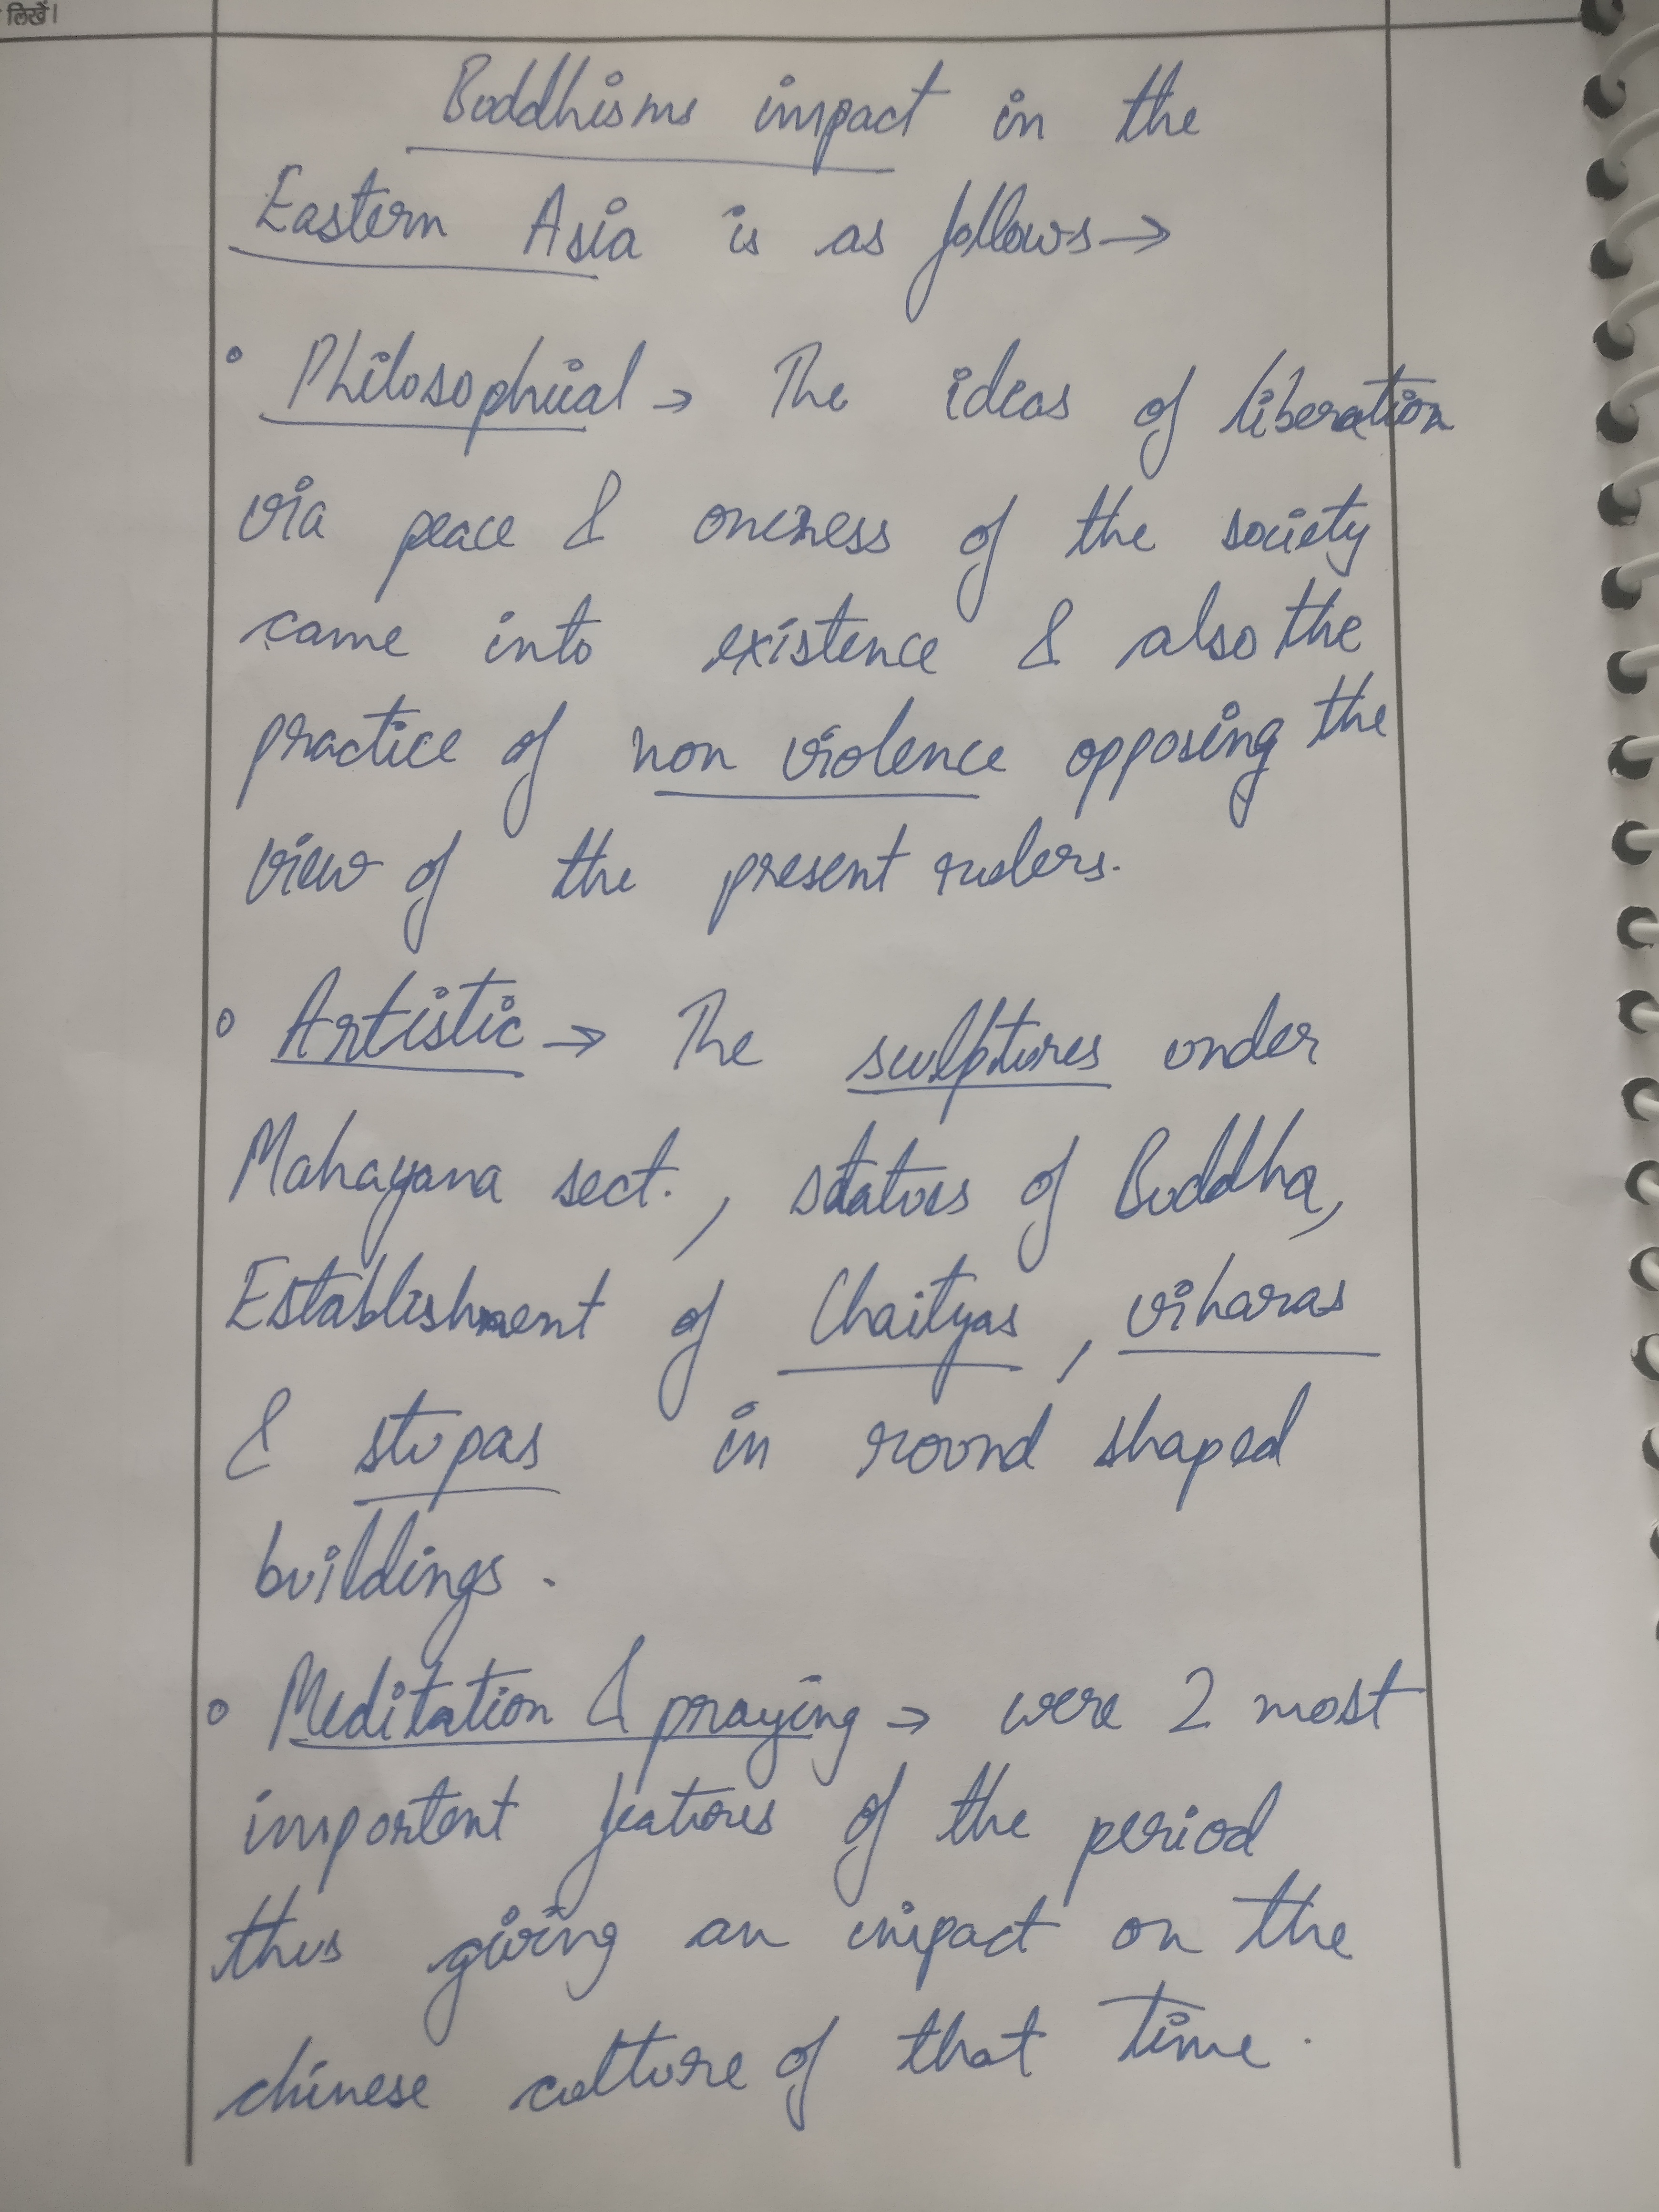 लिखें।
Buddhisms impact in the
Eastern Asia is as follows→
• Philosophical → The ideas of liberation
via peace & oneness of the society
came into existence & also the
practice of non violence opposing the
view of the present rulers.
• Artistic → The sculptures under
Mahayana sect. , statues of Buddha,
Establishment of Chaityas , viharas
& stupas in round shaped
buildings .
• Meditation & praying → were 2 most
important features of the period
thus giving an impact on the
chinese culture of that time .